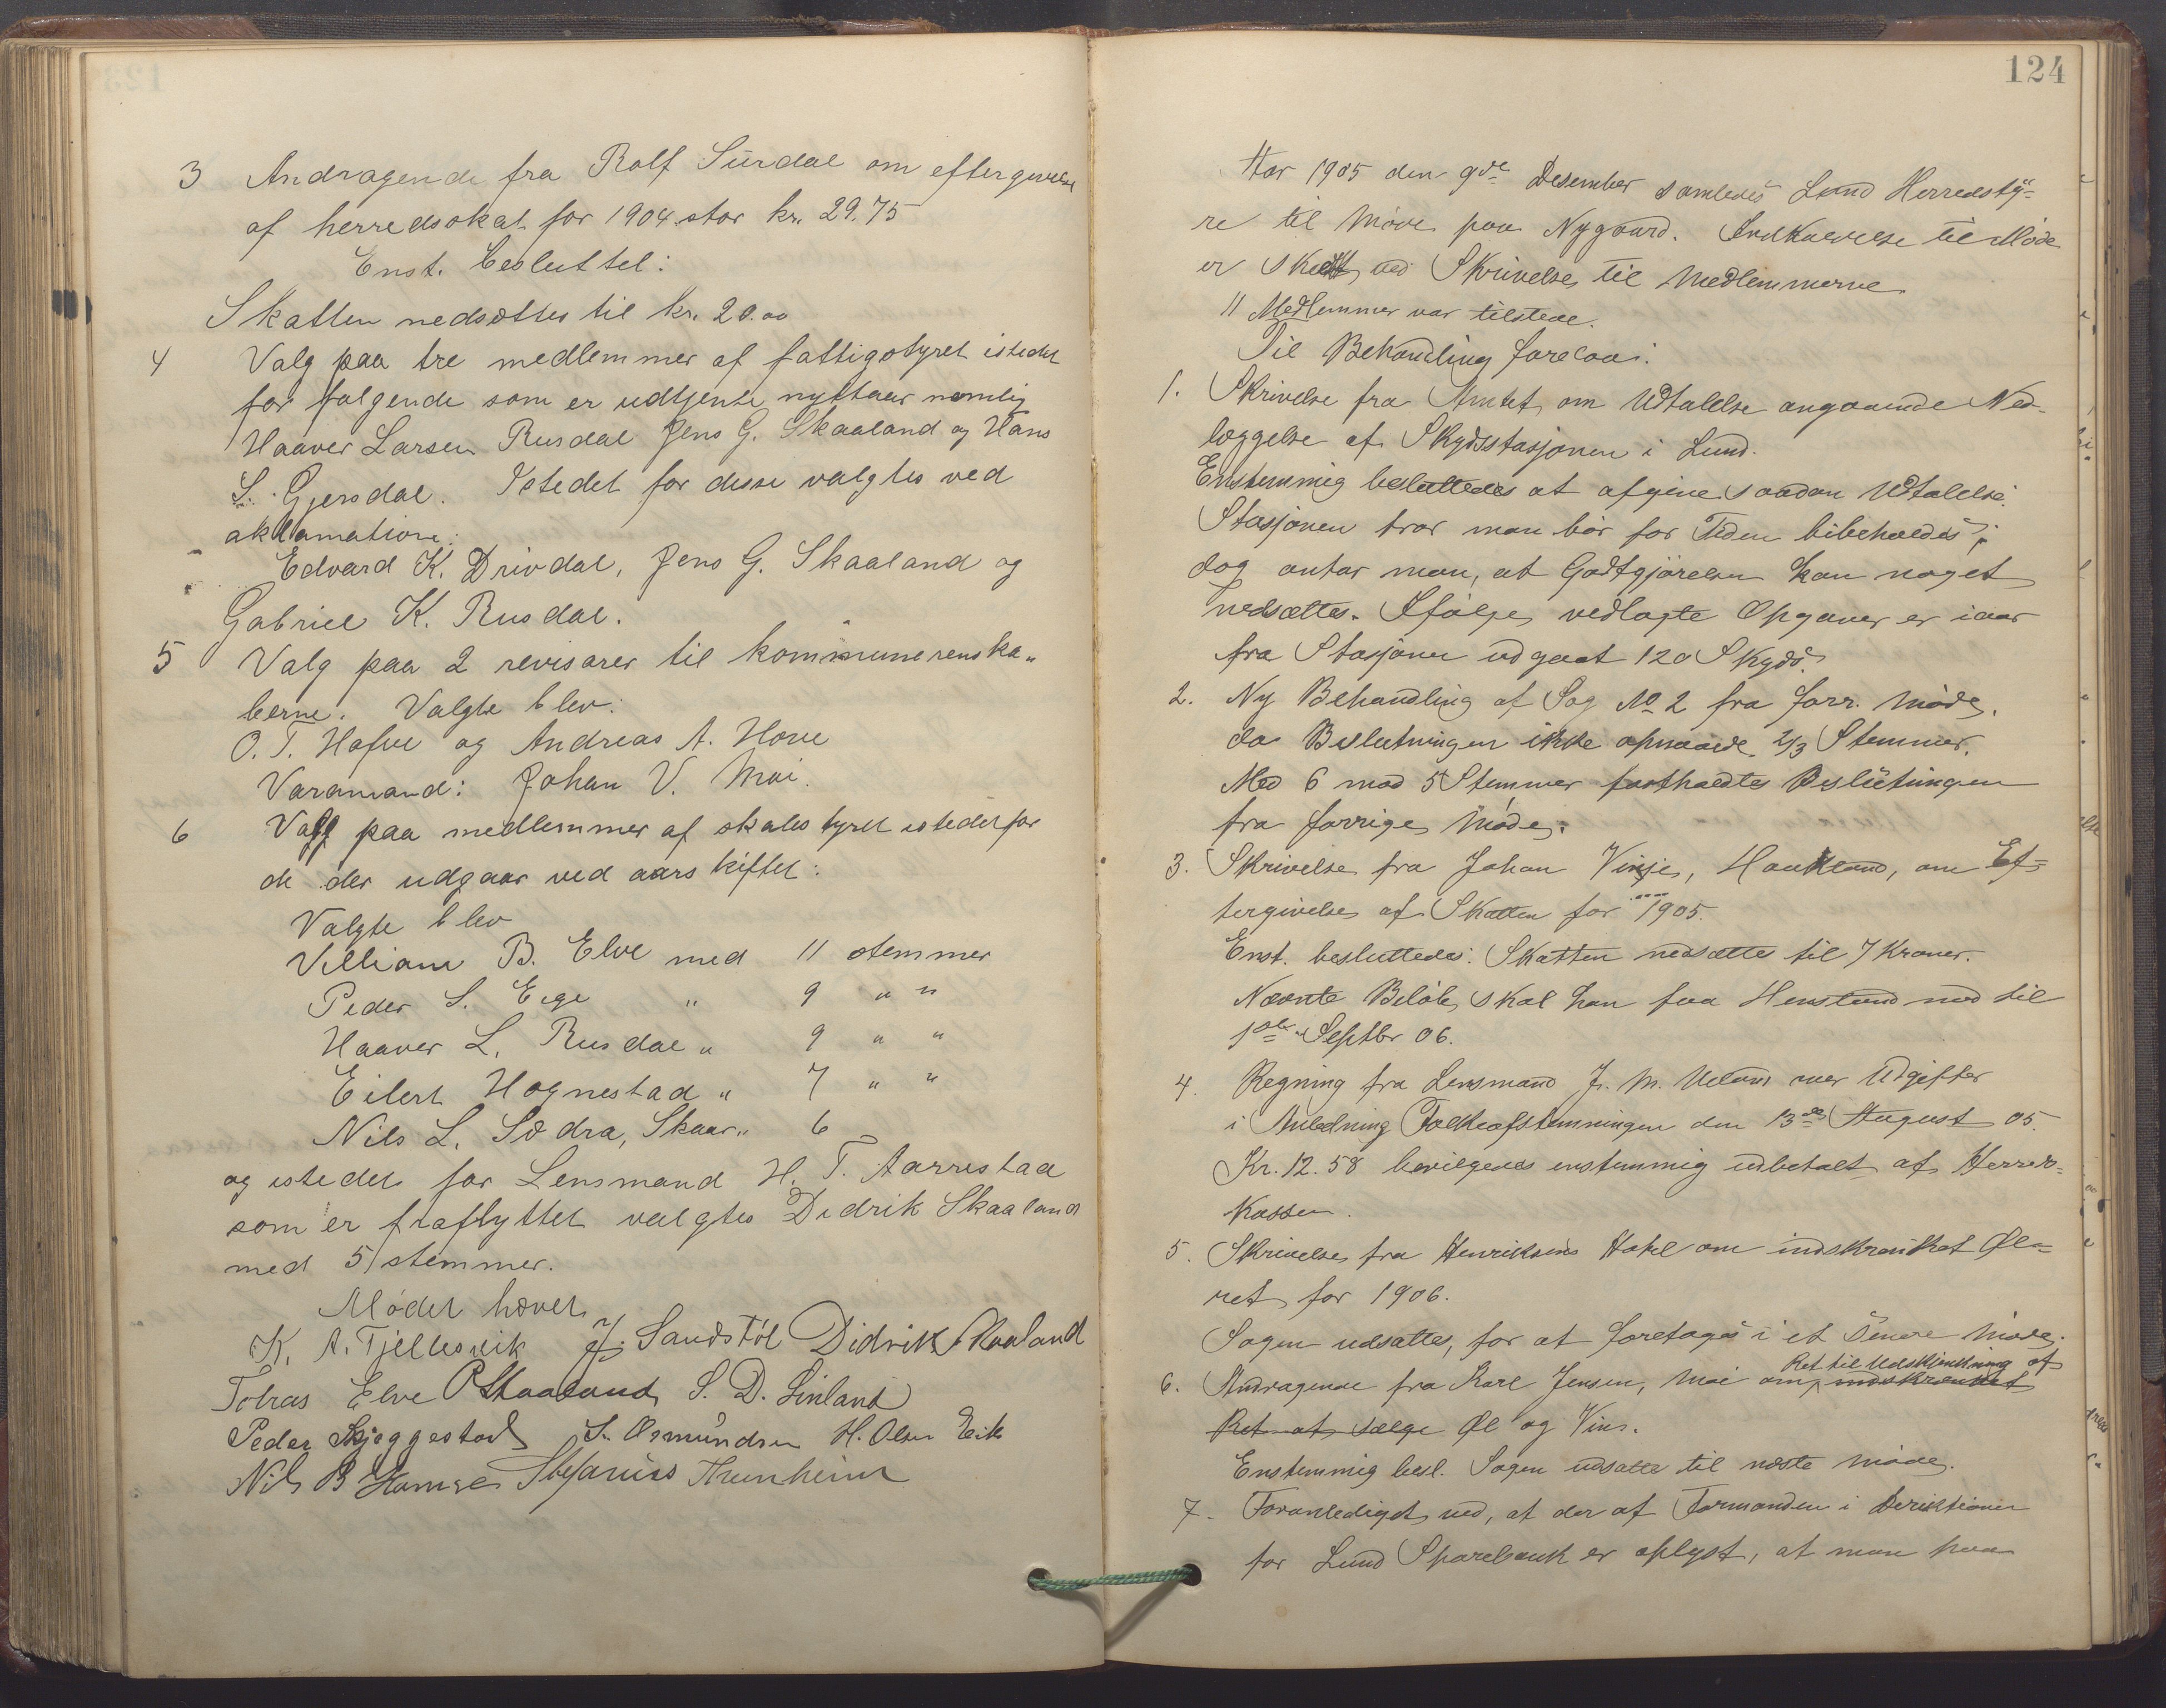 3 Andragende fra Rolf Sirdal om eftergivelse
af herredsskat for 1904 stor kr. 29.75
Enst. besluttet:
Skatten nedsættes til kr. 20.00
4 Valg paa tre medlemmer af fattigstyret istedet
for følgende som er udtjente nyttaar nemlig
Haaver Larsen Rusdal Jens G. Skaaland og Hans
L. Gjersdal. Istedet for desse valgtes ved
aklamation:
Edvard K. Drivdal, Jens G. Skaaland og
Gabriel K. Rusdal.
5 Valg paa 2 revisorer til kommunerenska„
berne. Valgte blev:
O. T. Hafve og Andreas A. Hove
Varamand: Johan V. Moi.
6 Valg paa medlemmer af skatestyret istedet for
de der udgaar ved aarskiftet:
Valgte blev
Villiam B. Elve med 11 stemmer
Peder S. Eige " 9 " "
Haaver L. Rusdal " 9 " "
Eilert Hognestad " 7 " "
Nils L. Sødra, Skaar " 6
og istedet for Lensmand H. T. Aarrestad
som er fraflyttet valgtes Didrik Skaaland
med 5 stemmer.
Mødet hævet.
K. A. Tjellesvik J. Sandstöl Didrik Skaaland
Tobias Elve P Skaaland S. D. Linland
Peder Skjeggestad S. Osmundsen H. Olsen Eik
Nils B Hamre Stefanius Thunheim
124
Aar 1905 den 9de Desember samledes Lund Herredsty=
re til Møde paa Nygaard. Indkaldelse til Møde
er skedt ved Skrivelse til Medlemmerne.
11 Medlemmer var tilstede.
Til Behandling forelaa:
1. Skrivelse fra Amtet om Udtalelse angaaende Ned-
læggelse af Skydsstasjonen i Lund.
Enstemmig besluttedes at afgive saadan Udtalelse:
Stasjonen tror man bør for Tiden bibeholdes;
dog antar man, at Godtgjørelsen kan noget
nedsættes. Ifølge vedlagte Opgaver er iaar
fra Stasjonen udgaat 120 Skyds.
2. Ny Behandling af Sag No 2 fra forr. Møde,
da Beslutningen ikke opnaaede 2/3 Stemmer.
Med 6 mod 5 Stemmer fastholdtes Beslutningen
fra forrige Møde.
3. Skrivelse fra Johan Vinje, Haukland, om Ef=
tergivelse af Skatten for 1905.
Enst. besluttedes: Skatten nedsættes til 7 Kroner.
Nævnte Beløb skal han faa Henstand med til
1ste Septbr 06.
4. Regning fra Lensmand J. M. Ueland over Udgifter
i Anledning Folkeafstemningen den 13de August 05.
Kr. 12.58 bevilgedes enstemmig udbetalt af Herreds=
kassen.
5. Skrivelse fra Henriksens Hotel om indskrænket Øl=
ret for 1906.
Sagen udsattes, for at foretages i et senere Møde.
6. Andragende fra Karl Jensen, Moi om indskrænket Ret til Udskjænkning af
Ret at sælge Øl og Vin.
Enstemmig besl. Sagen udsatte til næste Møde.
7. Foranlediget ved, at der af Formanden i Deriktionen
for Lund Sparebank er oplyst, at man paa